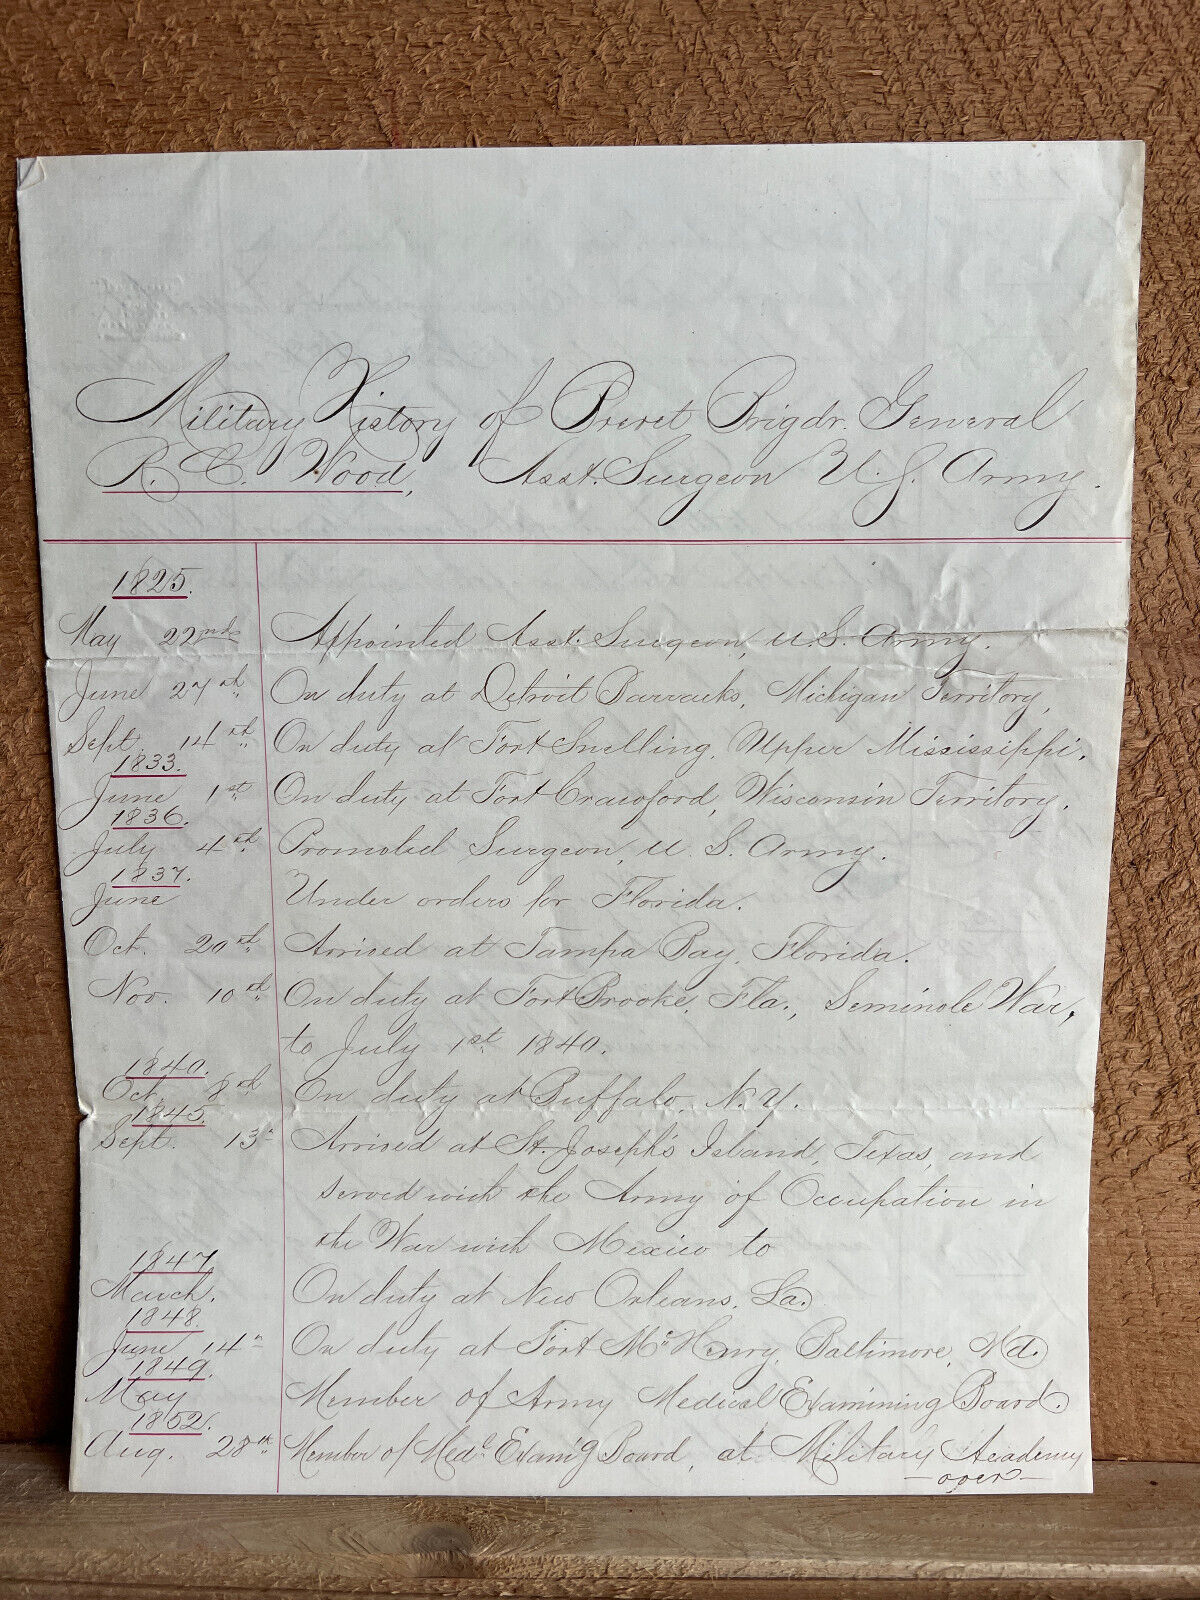 Military History of Brevet Brigdr. General
R. C. Wood, Asst. Surgeon U. S. Army.
1825.
May 22nd Appointed Asst. Surgeon, U.S. Army.
June 27th On duty at Detroit Barracks, Michigan Territory,
Sept. 14th On duty at Fort Snelling, Upper Mississippi.
1833.
June 1st On duty at Fort Crawford, Wisconsin Territory.
1836.
July 4th Promoted Surgeon, U. S. Army.
1837.
June Under orders for Florida.
Oct. 20th Arrived at Tampa Bay, Florida.
Nov. 10th On duty at Fort Brooke, Fla., Seminole War,
to July 1st 1840.
1840.
Oct. 8th On duty at Buffalo, N.Y.
1845.
Sept. 13" Arrived at St. Joseph's Island, Texas, and
served with the Army of Occupation in
the War with Mexico to
1847.
March. On duty at New Orleans, La.
1848.
June 14" On duty at Fort McHenry, Baltimore, Md.
1849.
May Member of Army Medical Examining Board.
1852.
Aug. 28th Member of Medl. Examg Board, at Military Academy
—over—